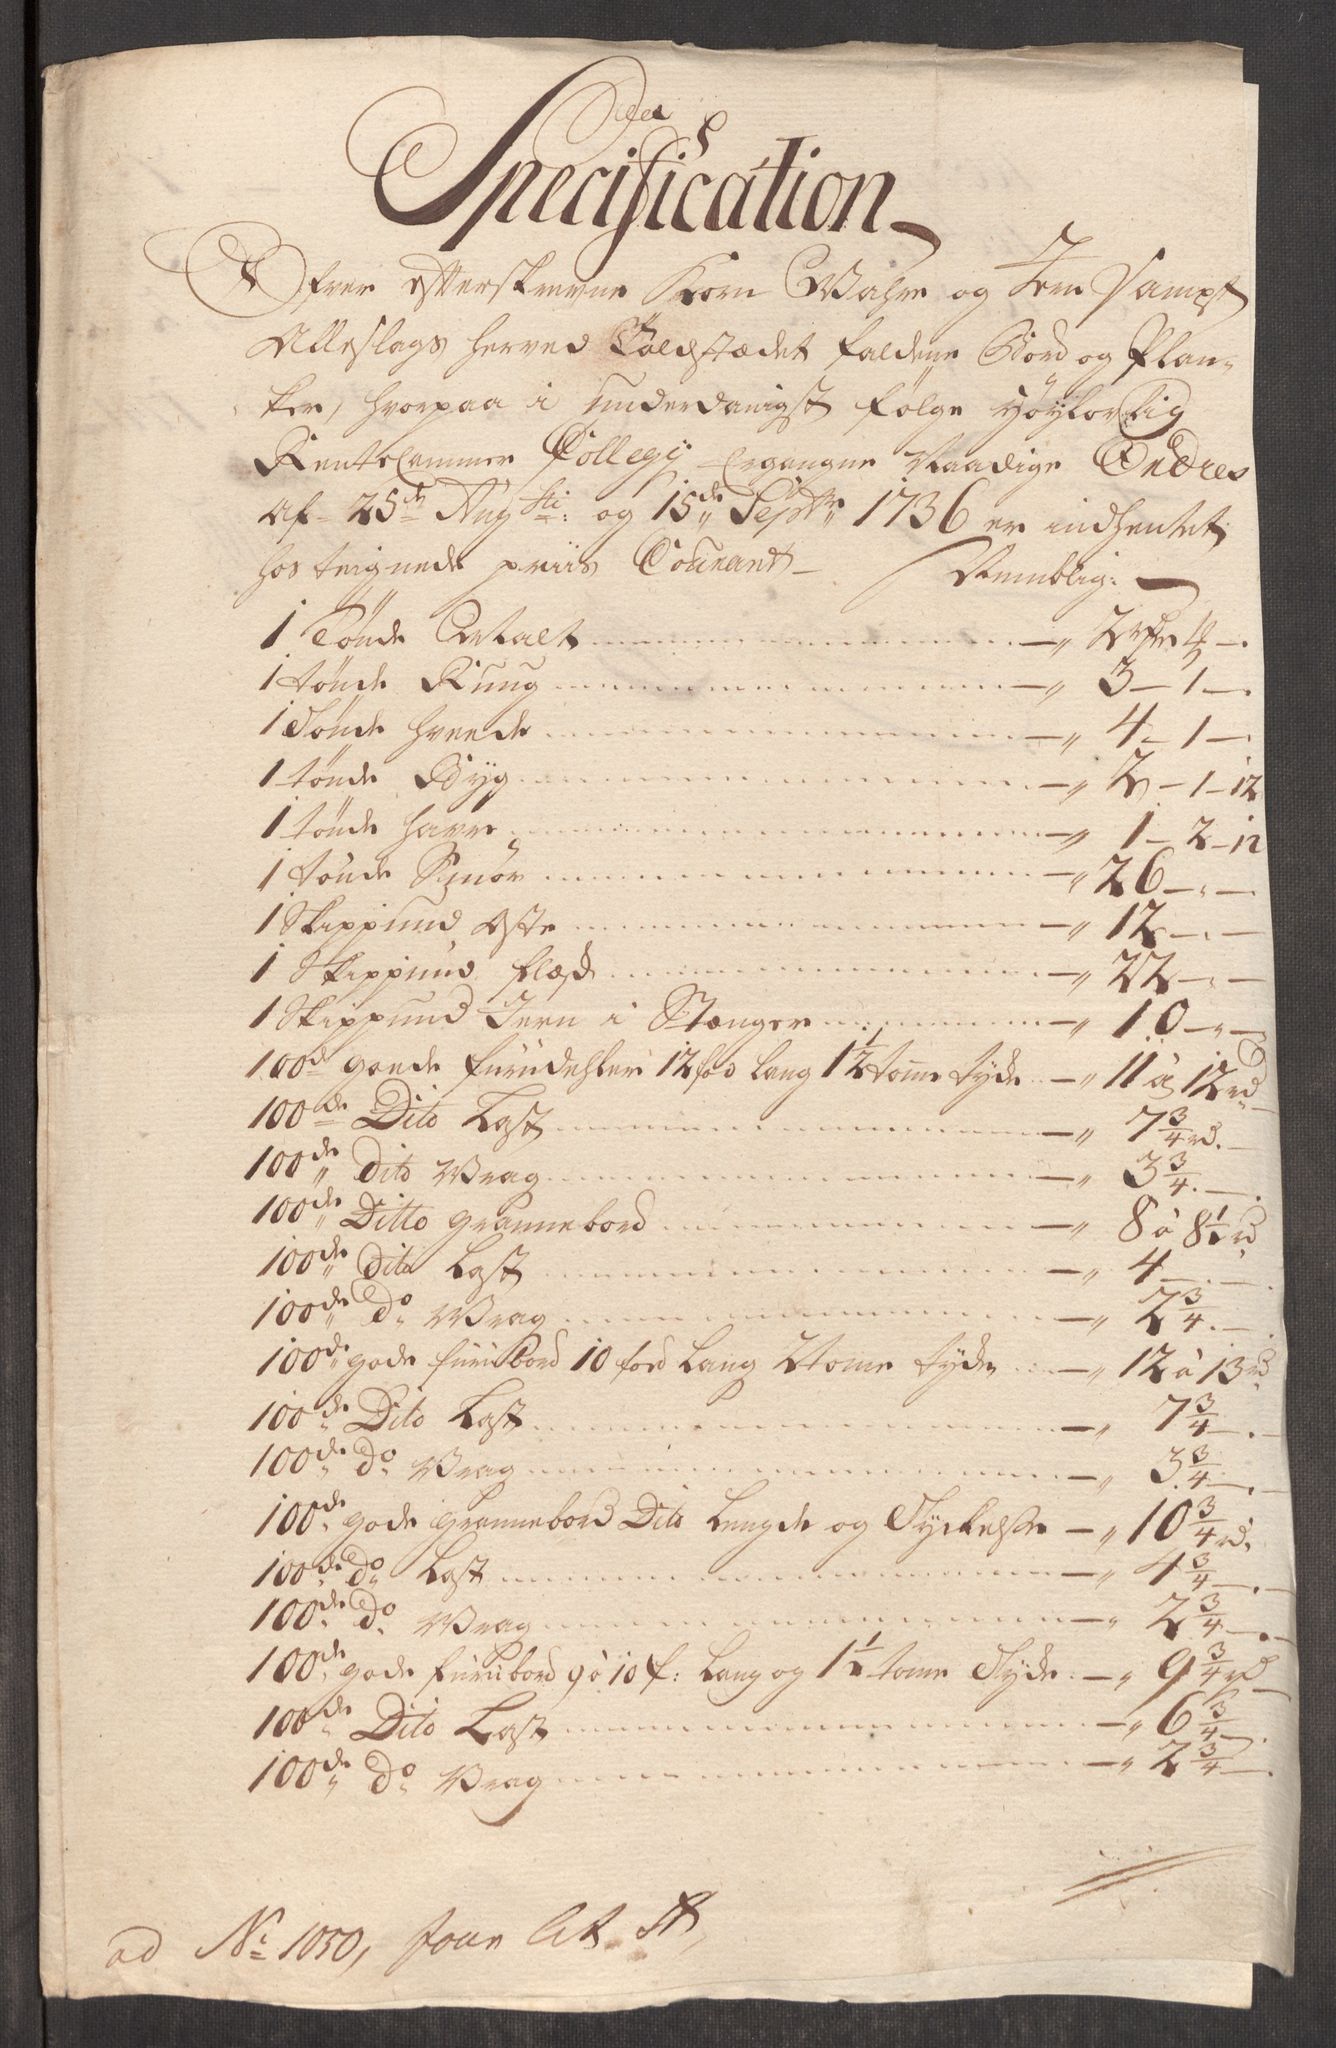 Specification
Ofver efterskrevne Korn Wahre og Jern sampt
Alleslags herved Toldstædet faldene Bord og Plan-
ker, hvorpaa i underdanigst følge Høylovlig
Rentecammer Collegij Ergangne Naadige Ordres
af 25de Augsti: og 15de Septbr: 1736 er indhentet
hos teignede priis Courant Nemblig:
1 Tønde 2 rdr 4 -
1 tønde Ruug 3 - 1 -
1 Tønde hvede 4 - 1 -
1 tønde Byg 2 - 1 - 12
1 tønde havre 1 - 2 - 12
1 tønde Smør 26 - " -
1 Skippund Oste 12 - " -
1 Skippund flæsk 22 - " -
1 Skippund Jern i Stænger 10 - " -
100de goede furudehler 12 fod lang 1 1/2 tome tyde 11 à 12 rd
100de Dito Last 7 3/4 rd.
100de Dito Wrag 3 3/4 . -
100de Ditto grannebord 8 à 8 1/2 rd
100de Dito Last 4 - . -
100de do Wrag 2 3/4 . -
100de gode furubord 10 fod Lang 2 tome tyde 12 à 13 rd
100de Dito Last 7 3/4 - . -
100de do Wrag 3 3/4 - . -
100de gode grannebord Dito Lengde og Tyckelse 10 3/4 rd.
100de do Last 4 3/4 - . -
100de do Wrag 2 3/4 - . -
100de gode furubord 9 à 10 f: Lang og 1 1/2 tome Tyde 9 3/4 rd
100de Dito Last 6 3/4 -
100de do Wrag 2 3/4 - .
ad No 1050, Jour Lit